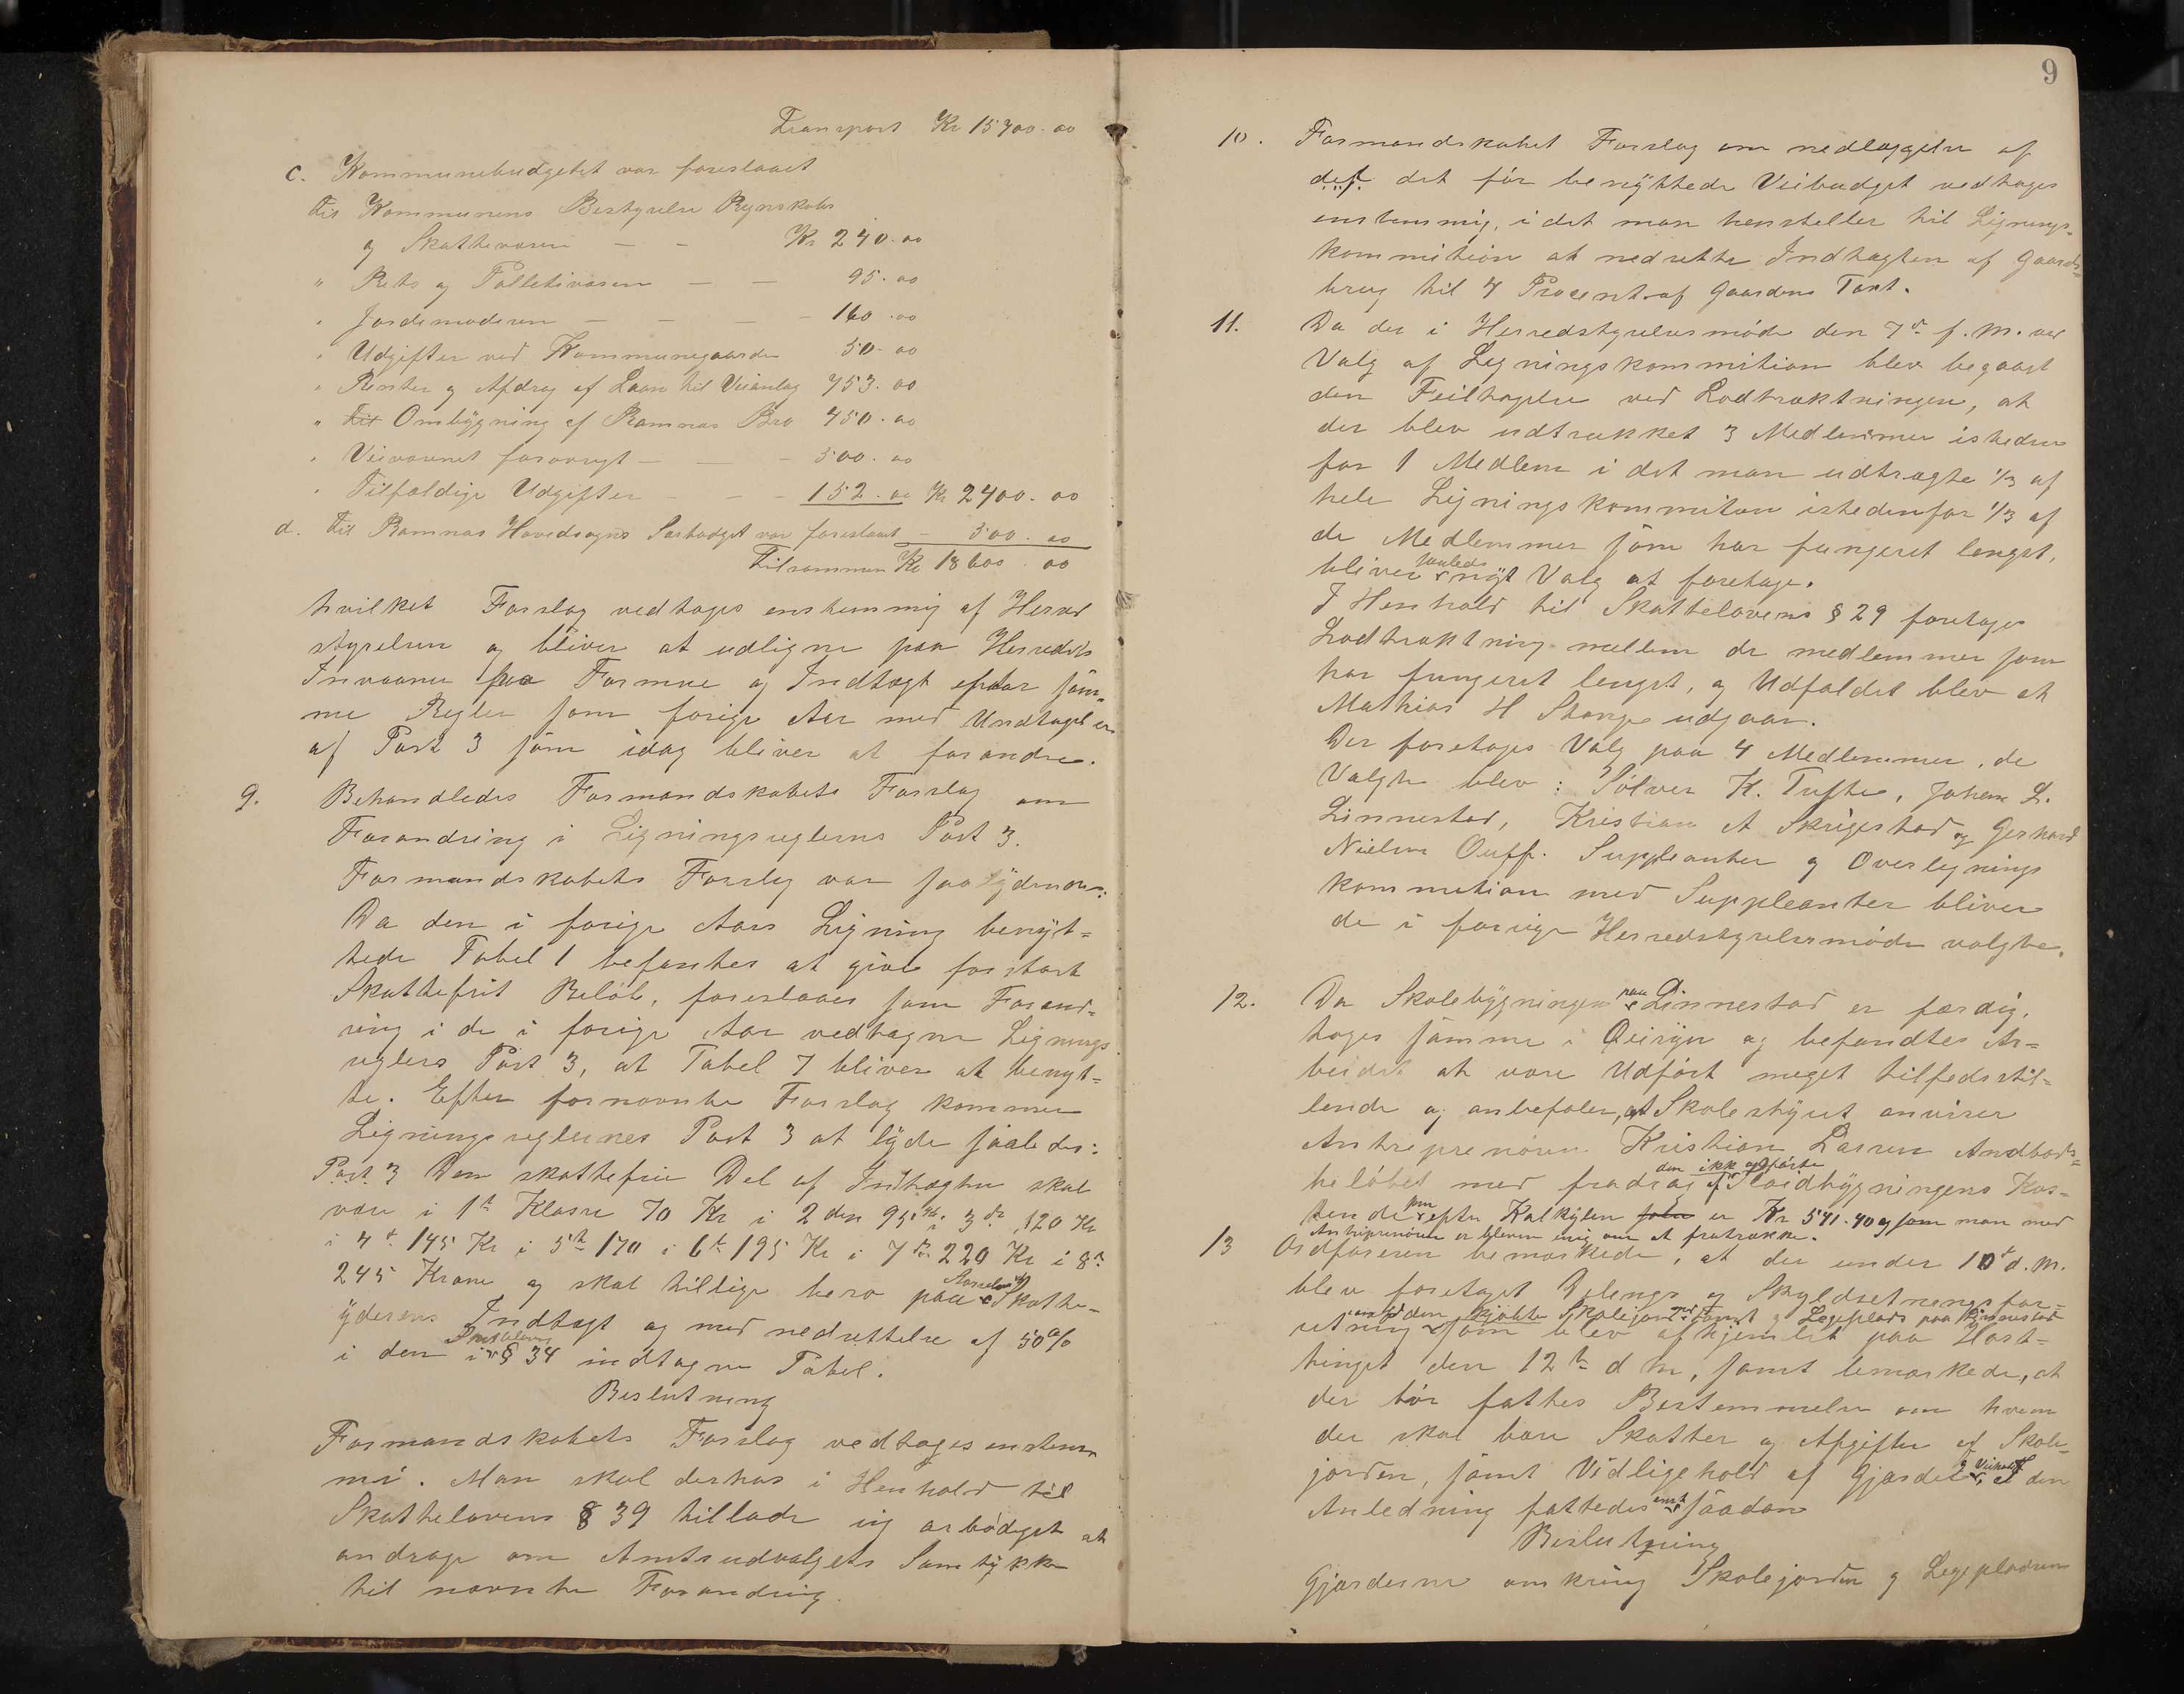 Transport Kr 15700.00
c. Kommunebudgetet var foreslaaet
til Kommunens Bestyrelse Regnskabs
og Skattevæsen — — Kr 240.00
" Rets og Pollitivæsen — — 95.00
" Jordemoderen — — — 160.00
" Udgifter ved Kommunegaarden 50.00
" Renter og Afdrag af Laan til Veianlæg 753.00
" til Ombygning af Ramnæs Bro 450.00
" Veivæsenet forøvrigt — — 500.00
" Tilfældige Udgifter — — 152.00 Kr 2400.00
d. til Ramnæs Hovedsogns Særbudget var foreslaaet — 500.00
Tilsammen Kr 18600.00
hvilket Forslag vedtoges enstemmig af Herred
styrelsen og bliver at udligne paa Herredets
Invaaner paa Formue og Indtægt efter sam-
me Regler som forige Aar med Undtagelse
af Post 3 som idag bliver at forandre.
9. Behandledes Formandskabets Forslag om
Forandring i Ligningsreglerns Post 3.
Formandskabets Forslag var saalydende:
Da den i forige Aars Ligning benyt=
tede Tabel 1 befantes at give for stort
Skattefrit Beløb, foreslaaes som Forand=
ring i de i forige Aar vedtagne Lignings
reglers Post 3, at Tabel 7 bliver at benyt=
te. Efter fornævnte Forslag kommer
Ligningsreglernes Post 3 at lyde saaledes:
Post 3 Den skattefrie Del af Indtægten skal
være i 1st Klasse 70 Kr i 2den 95 Kr i 3de 120 Kr
i 4de 145 Kr i 5te 170 i 6te 195 Kr i 7de 220 Kr i 8de
245 Kroner og skal tillige bero paa Skatte-
yderens Indtægt og med nedsettelse af 50 %
Skatteloven
i den i § 34 indtagne Tabel.
Beslutning
Formandskabets Forslag vedtages enstem
mi. Man skal derhos i Henhold til
Skattelovens § 39 tillade sig ærbødigst at
andrage om Amtsudvalgets Samtykke
til nævnte Forandring.
9
10. Formandskabet Forslag om nedlæggelse af
det det før benyttede Veibudget vedtages
enstemmig, i det man henstiller til Lignings=
kommition at nedsette Indtægten af Gaards=
brug til 4 Procent af Gaardens Taxt.
11. Da der i Herredstyrelsesmøde den 7de f. M. ved
Valg af Ligningskommition blev begaaet
den Feiltagelse ved Lodtrækningen, at
der blev udtrukket 3 Medlemmer isteden
for 1 Medlem i det man udtrægte 1/3 af
hele Ligningskommition istedenfor 1/3 af
de Medlemmer som har fungeret lengst,
saaledes
bliver nyt Valg at foretage.
I Henhold til Skattelovens § 29 foretages
Lodtrækning mellem de medlemmer som
har fungeret lengst, og Udfaldet blev at
Mathias H Stange udgaar.
Der foretoges Valg paa 4 Medlemmer, de
Valgte blev: Sølver H. Tufte, Johan L.
Linnestad, Kristian A Skrigestad og Gerhard
Nielsen Ouff. Suppleanter og Overlignings
kommition med Suppleanter bliver
de i forige Herredstyrelsesmøde valgte.
12. Da Skolebygningen paa Linnestad er færdig,
toges samme i Øeisyn og befandtes Ar=
beidet at være Udført meget tilfedsstil=
lende og anbefaler, at Skolestyret anviser
Antreprenøren Kristian Larsen Andbods=
den ikke opførte
beløbet med fradrag af Sløidbygningens Kos=
tende som efter Kalkylen er Kr 541.40 og som man med
Antreprenøren er bleven enig om at fratrække.
13 Ordføreren bemærkede, at der under 10de d. M.
blev foretaget Delings og Skyldsetningsfor=
paa den kjøbte Skolejord samt Legeplads paa Linnestad
retning som blev afhjemlet paa Høst=
tinget den 12te d M, samt bemærkede, at
der bør fattes Bestemmelse om hvem
der skal bære Skatter og Afgifter af Skole=
jorden, samt Vidligehold af Gjærdet og Veihold, i den
Anledning fattedes enst saadan
Beslutning
Gjærderne omkring Skolejorden og Legepladsen